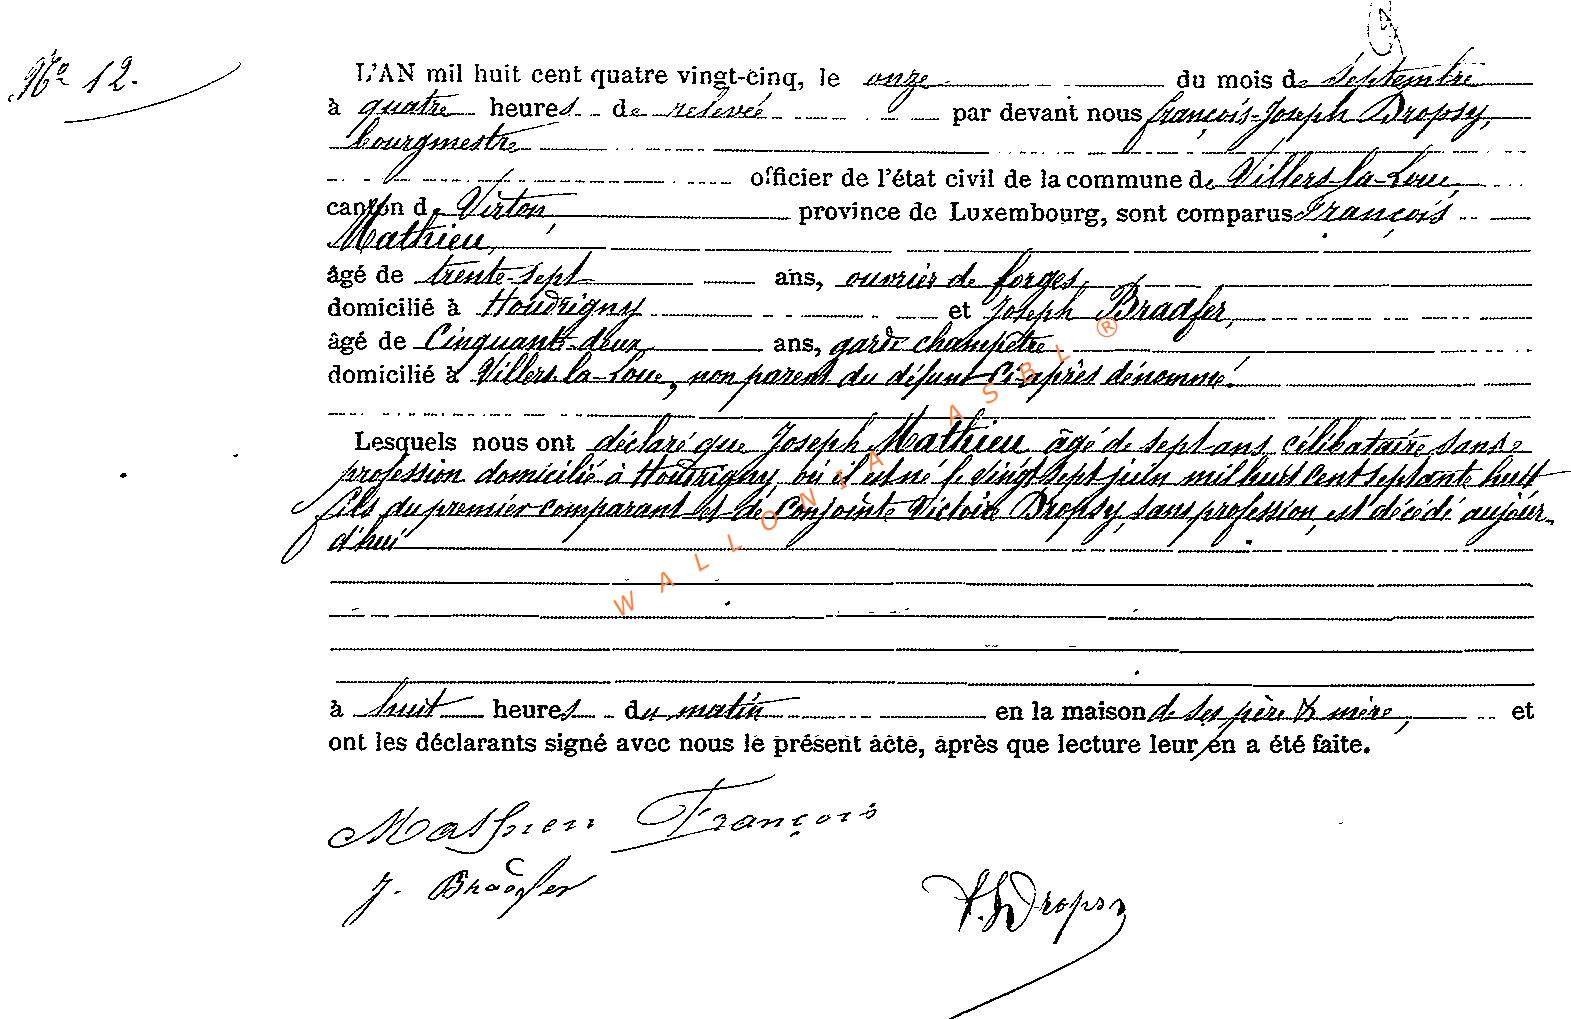 No 12.
L'AN mil huit cent quatre vingt-cinq, le onze du mois de septembre
à quatre heures de relevée par devant nous françois-Joseph Dropsy,
bourgmestre
officier de l'état civil de la commune de Villers-la-Loue,
canton de Virton, province de Luxembourg, sont comparus François
Mathieu,
âgé de trente-sept ans, ouvrier de forges,
domicilié à Houdrigny et Joseph Bradfer,
âgé de Cinquante-deux ans, garde champêtre
domicilié à Villers-la-Loue, non parent du défunt ci-après dénommé.
Lesquels nous ont déclaré que Joseph Mathieu âgé de sept ans, célibataire sans
profession domicilié à Houdrigny, où il est né le vingt sept juin mil huit cent septante huit
fils du premier comparant et de conjointe Victoire Dropsy, sans profession, est décédé aujour-
d'hui
à huit heures du matin en la maison de ses père & mère, et
ont les déclarants signé avec nous le présent acte, après que lecture leur en a été faite.
Mathieu François
J. Bradfer
F. J. Dropsy
WALLONIA ASBL ®